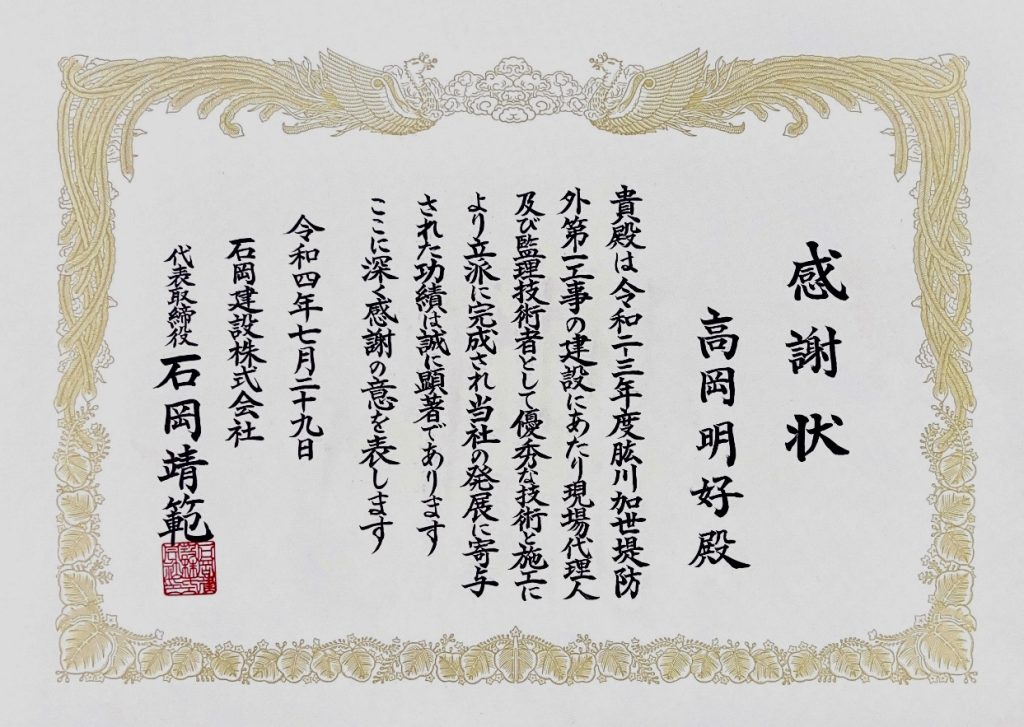 感謝状
高岡明好殿
貴殿は令和二・三年度肱川加世堤防
外第一工事の建設にあたり現場代理人
及び監理技術者として優秀な技術と施工に
より立派に完成され当社の発展に寄与
された功績は誠に顕著であります
ここに深く感謝の意を表します
令和四年七月二十九日
石岡建設株式会社
代表取締役 石岡靖範